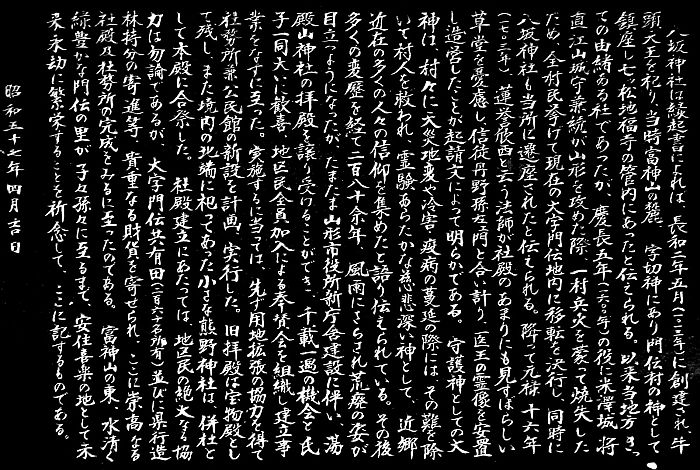 八坂神社は縁起書によれば、長和二年五月(一〇一三年)に創建され牛
頭天王を祀り、当時富神山の麓 字切神にあり門伝村の神として
鎮座し七ッ松地福寺の管内にあったと伝えられる。以来当地方きっ
ての由緒ある社であったが、慶長五年(一六〇〇年)の役に米澤城将
直江山城守兼続が山形を攻めた際、一村兵火を蒙って焼失した
ため、全村民挙げて現在の大字門伝地内に移転を決行し、同時に
八坂神社も当所に遷座されたと伝えられる。降って元禄十六年
(一七〇三年) 蓮誉俊西と云う法師が社殿のあまりにも見すぼらしい
草堂を憂慮し、信徒丹野孫左ェ門と合い計り、医王の霊像を安置
し造営したことが起請文によって明らかである。守護神としての大
神は、村々に天災地変や冷害・疫病の蔓延の際には、その難を除
いて村人を救われ、霊験あらたかな慈悲深い神として、近郷
近在の多くの人々の信仰を集めたと語り伝えられている。その後
多くの変歴を経て二百八十余年、風雨にさらされ荒廃の姿が
目立つようになったが、たまたま山形市役所新庁舎建設に伴い、湯
殿山神社の拝殿を譲り受けることができ、千載一遇の機会と氏
子一同大いに歓喜、地区民全員加入による奉賛会を組織し建立事
業をなすに至った。実施するに当っては、先ず用地拡張の協力を得て
社務所兼公民館の新設を計画、実行した。旧拝殿は宝物殿とし
て残し、また境内の北端に祀ってあった小さな熊野神社は、併社と
して本殿に合祭した。社殿建立にあたっては、地区民の絶大なる協
力は勿論であるが、大字門伝共有田(二百六十名所有)並びに県行造
林持分の寄進等、貴重なる財貨を寄せられ、ここに崇高なる
社殿及社務所の完成をみるに至ったのである。富神山の東、水清く
緑豊かな門伝の里が子々孫々に亙るまで、安住喜楽の地として未
来永劫に繁栄することを祈念して、ここに記するものである。
昭和五十七年四月吉日